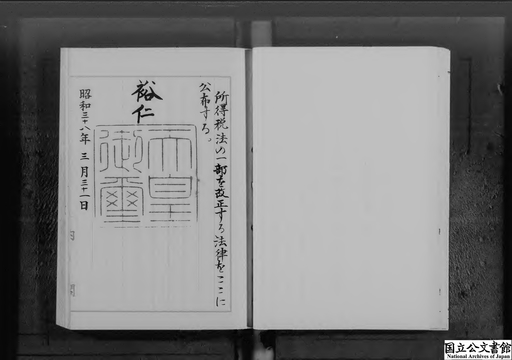 所得税法の一部を改正する法律をここに
公布する。
裕仁
天皇
御璽
昭和三十八年三月三十一日
国立公文書館
National Archives of Japan